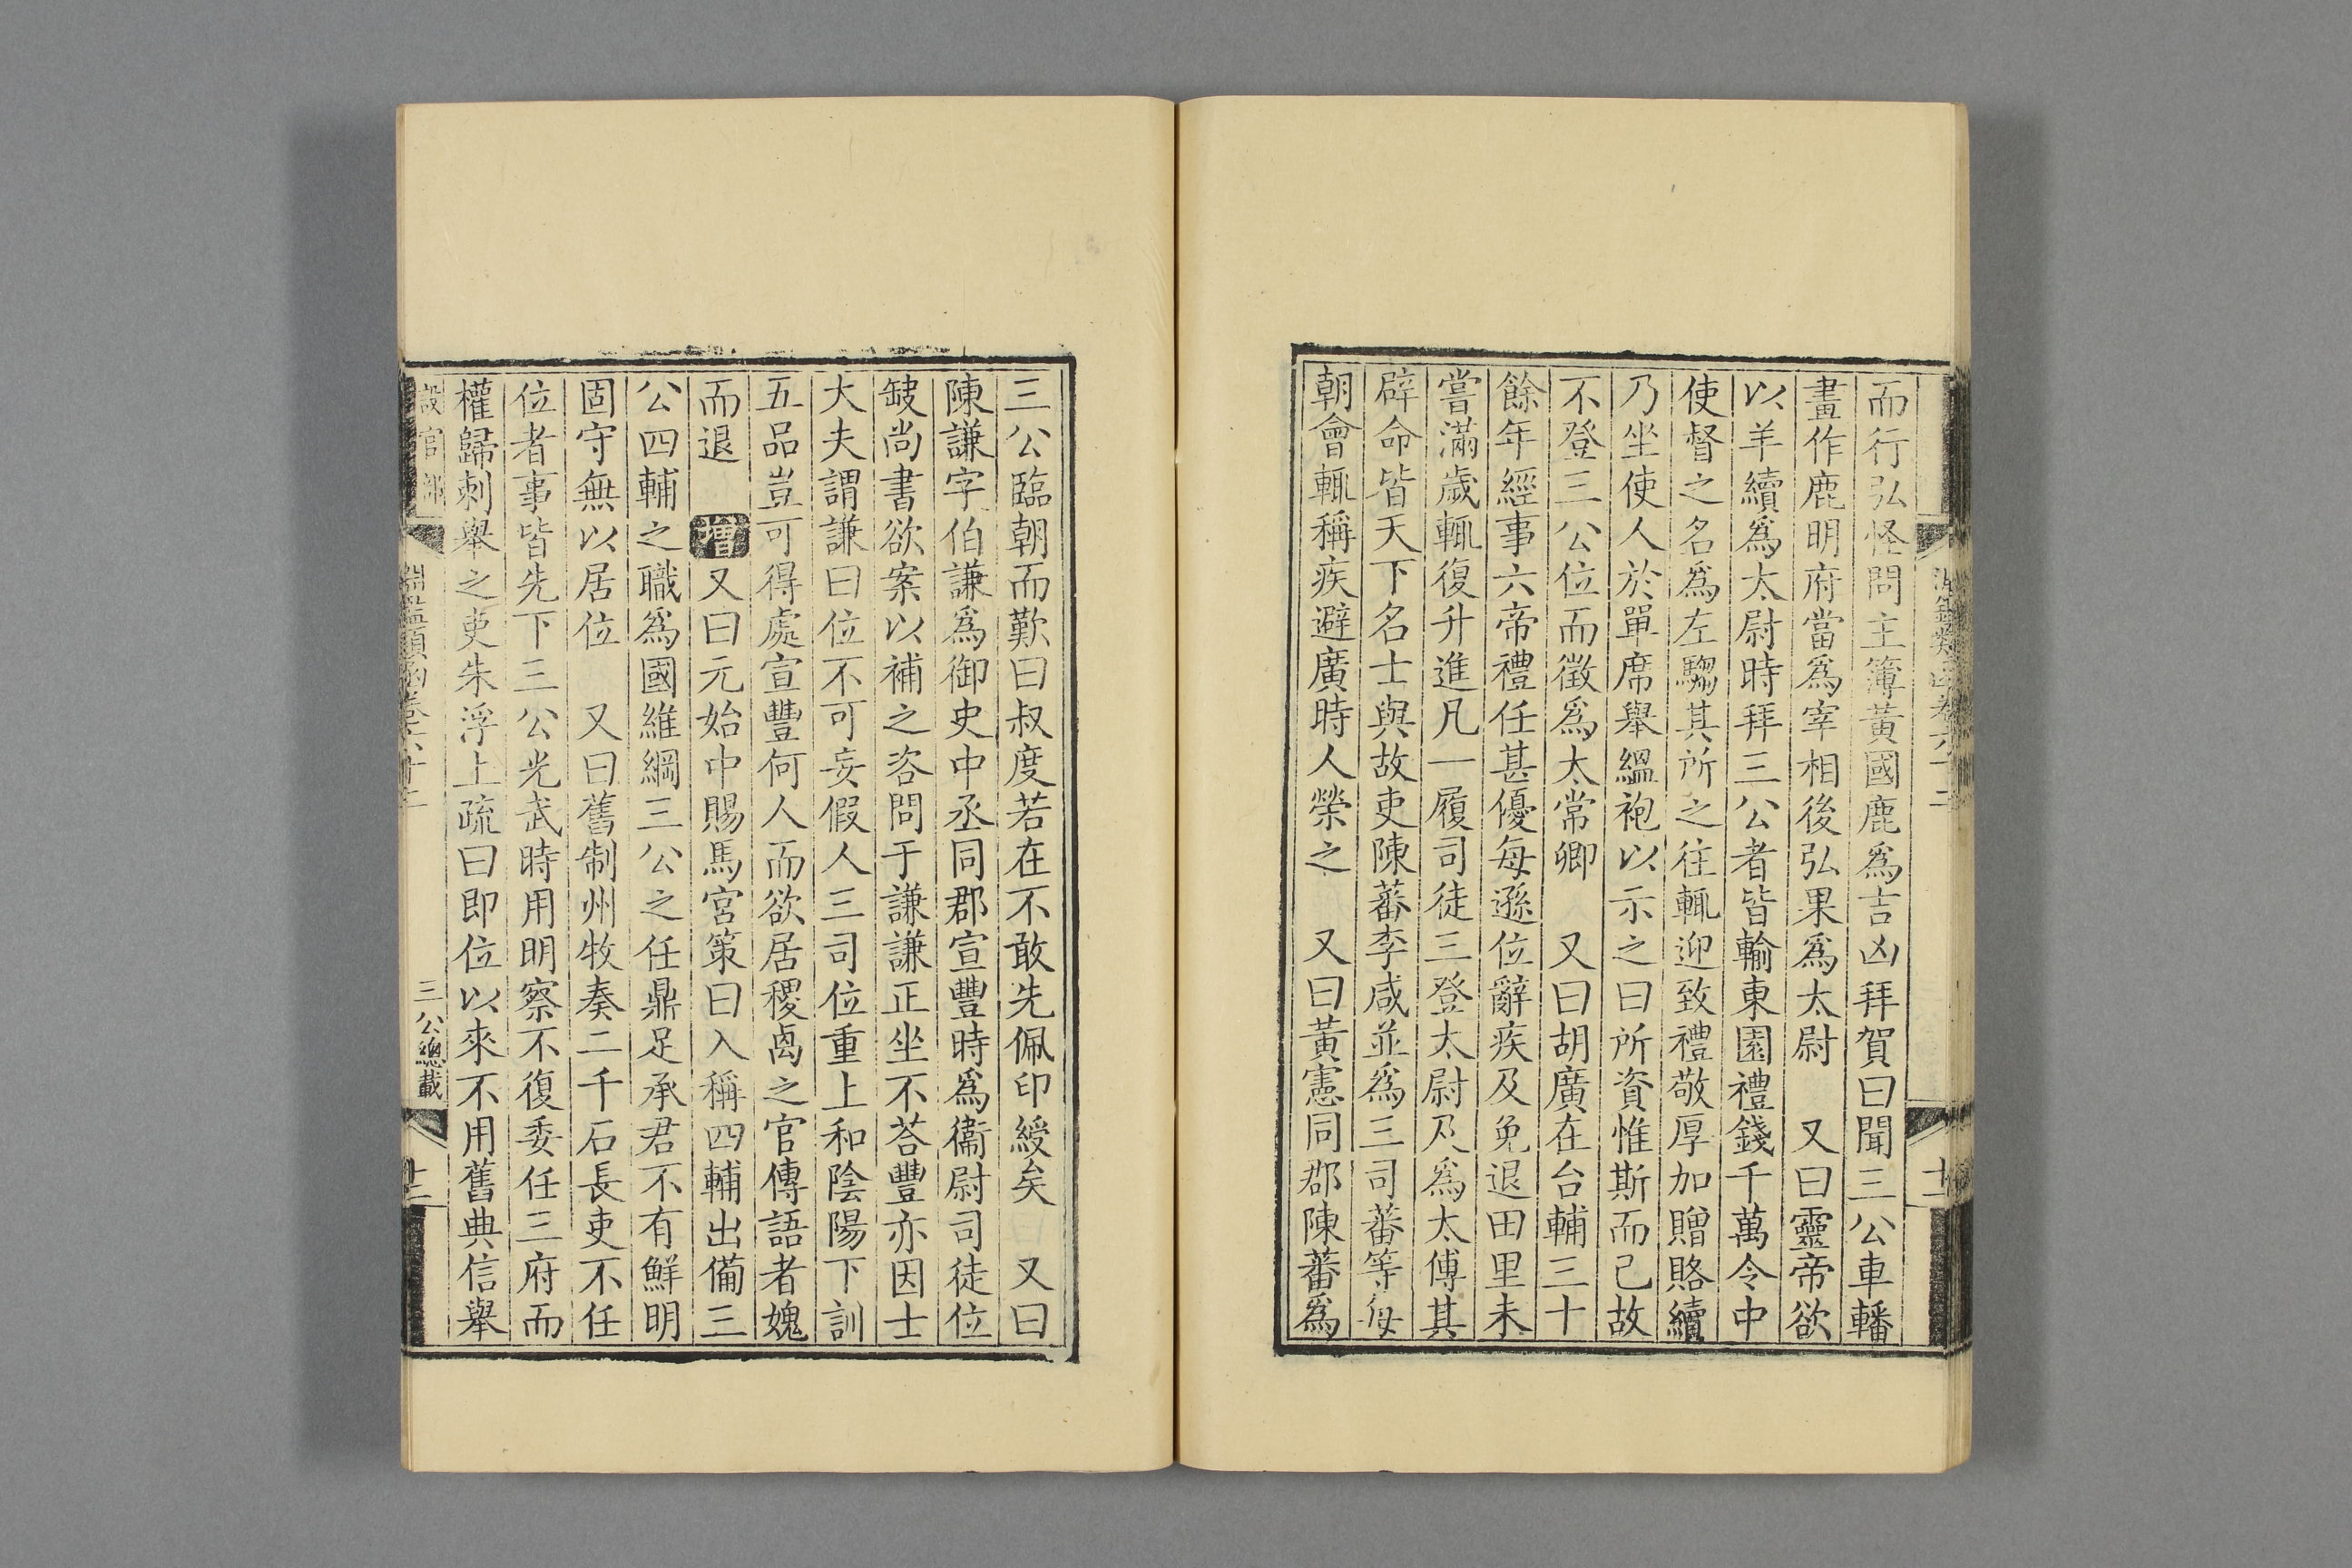 而行弘怪問主簿黃國鹿爲吉凶拜賀曰聞三公車轓
畫作鹿明府當爲宰相後弘果爲太尉　又曰靈帝欲
以羊續爲太尉時拜三公者皆輸東園禮錢千萬令中
使督之名爲左騶其所之往輒迎致禮敬厚加贈賂續
乃坐使人於單席舉縕袍以示之曰所資惟斯而已故
不登三公位而徵爲太常卿　又曰胡廣在台輔三十
餘年經事六帝禮任甚優每遜位辭疾及免退田里未
嘗滿歲輒復升進凡一履司徒三登太尉及爲太傅其
辟命皆天下名士與故吏陳蕃李咸並爲三司蕃等每
朝會輒稱疾避廣時人榮之　又曰黃憲同郡陳蕃爲
三公臨朝而歎曰叔度若在不敢先佩印綬矣　又曰
陳謙字伯謙爲御史中丞同郡宣豐時爲衞尉司徒位
缺尚書欲案以補之咨問于謙謙正坐不荅豐亦因士
大夫謂謙曰位不可妄假人三司位重上和陰陽下訓
五品豈可得處宣豐何人而欲居稷卨之官傳語者媿
而退　增又曰元始中賜馬宮策曰入稱四輔出備三
公四輔之職爲國維綱三公之任鼎足承君不有鮮明
固守無以居位　又曰舊制州牧奏二千石長吏不任
位者事皆先下三公光武時用明察不復委任三府而
權歸刺舉之吏朱浮上疏曰即位以來不用舊典信舉
設官部　淵鑑類函卷六十二　三公總載　十二